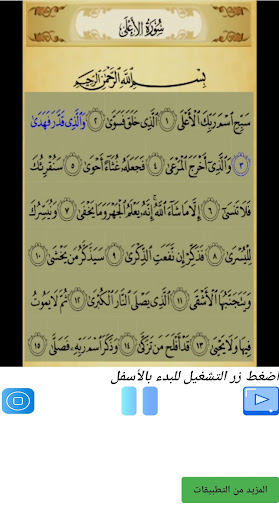 سُورَةُ الأَعْلَى
بِسْمِ اللَّهِ الرَّحْمَنِ الرَّحِيمِ
سَبِّحِ اسْمَ رَبِّكَ الْأَعْلَى ١ الَّذِي خَلَقَ فَسَوَّى ٢ وَالَّذِي قَدَّرَ فَهَدَى
٣ وَالَّذِي أَخْرَجَ الْمَرْعَى ٤ فَجَعَلَهُ غُثَاءً أَحْوَى ٥ سَنُقْرِئُكَ
فَلَا تَنسَى ٦ إِلَّا مَا شَاءَ اللَّهُ إِنَّهُ يَعْلَمُ الْجَهْرَ وَمَا يَخْفَى ٧ وَنُيَسِّرُكَ
لِلْيُسْرَى ٨ فَذَكِّرْ إِن نَّفَعَتِ الذِّكْرَى ٩ سَيَذَّكَّرُ مَن يَخْشَى ١٠
وَيَتَجَنَّبُهَا الْأَشْقَى ١١ الَّذِي يَصْلَى النَّارَ الْكُبْرَى ١٢ ثُمَّ لَا يَمُوتُ
فِيهَا وَلَا يَحْيَى ١٣ قَدْ أَفْلَحَ مَن تَزَكَّى ١٤ وَذَكَرَ اسْمَ رَبِّهِ فَصَلَّى ١٥
اضغط زر التشغيل للبدء بالأسفل
المزيد من التطبيقات